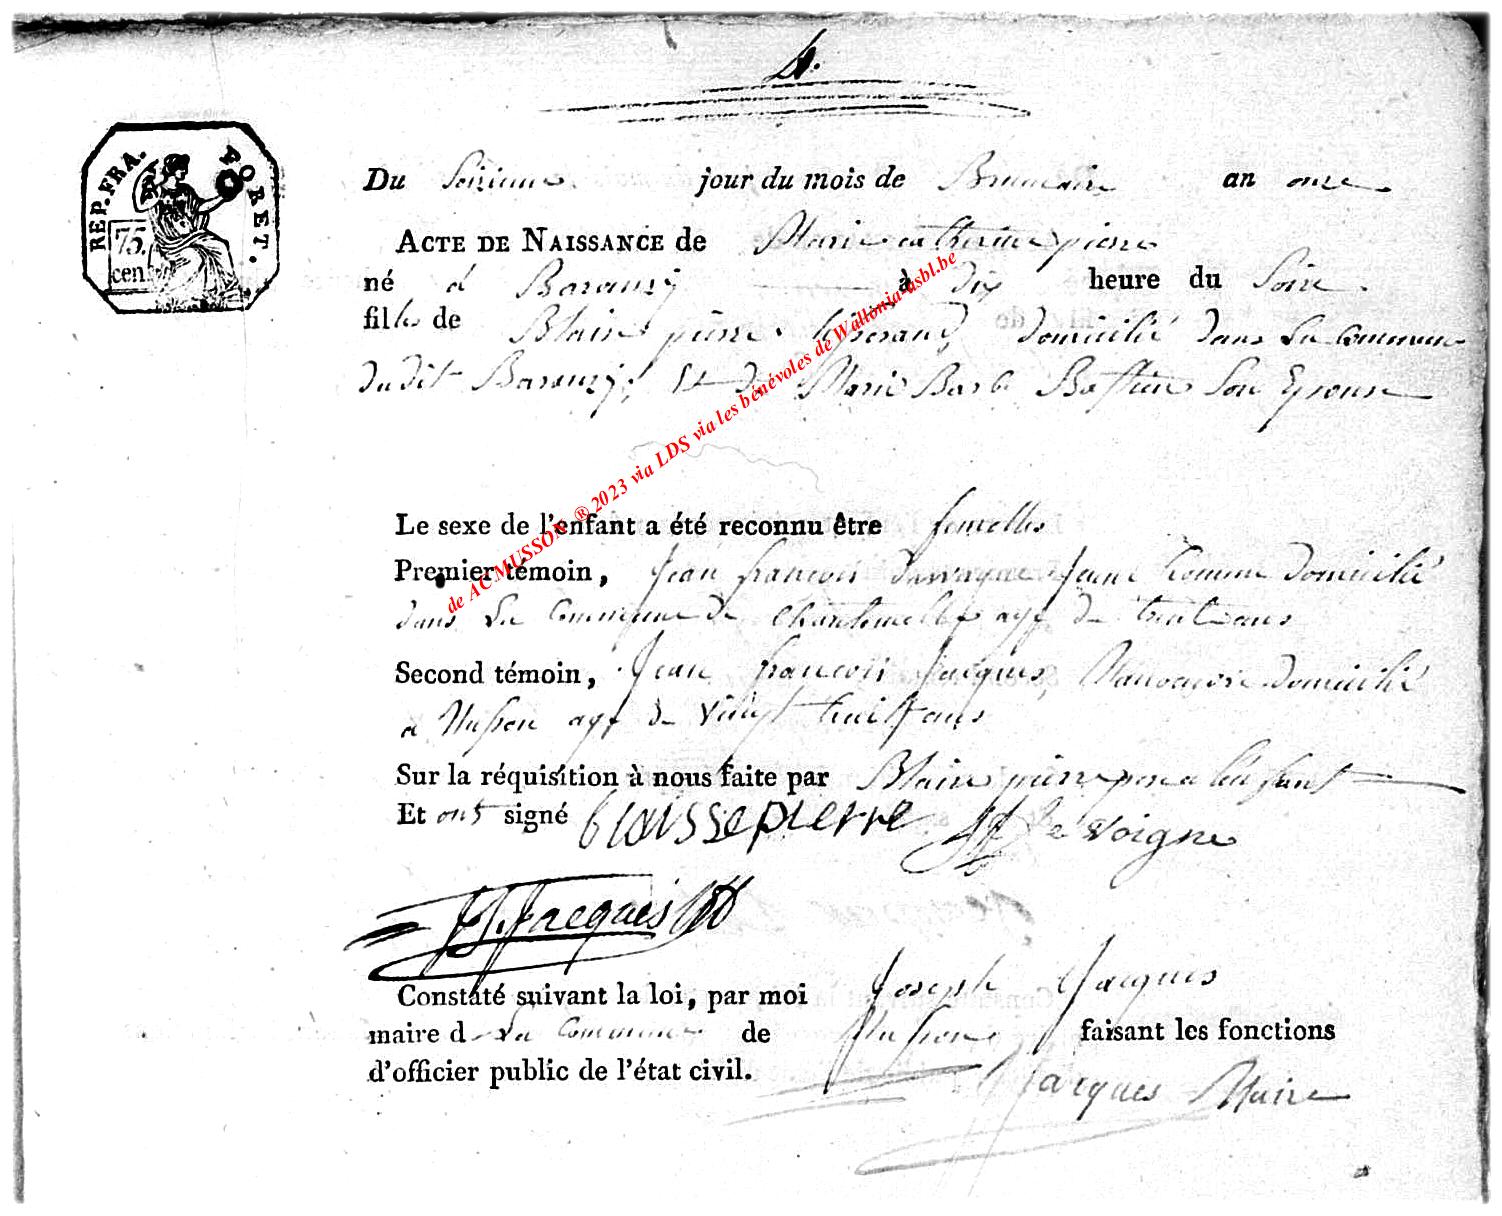 4.
REP. FRA. FORET.
75. cen.
Du Seizieme jour du mois de Brumaire an onze
ACTE DE NAISSANCE de Marie catherine pierre
né a Baranzy à dix heure du Soire
filles de Blaise pierre domicilié dans La Commune
du dit Baranzy, Et de Marie Barbe Bastien Son Epouse
Le sexe de l'enfant a été reconnu être femelles
Premier témoin, Jean françois Jeune homme domicilié
dans La Commune de Chantemelle age de trente ans
Second témoin, Jean françois Jacques, Manoeuvre domicilié
a Musson age de vingt huit ans
Sur la réquisition à nous faite par Blaise pierre pere a L'enfant
Et ont signé blaisse pierre le voigne
J. f. Jacques
Constaté suivant la loi, par moi Joseph Jacques
maire d La Commune de Musson faisant les fonctions
d'officier public de l'état civil. Jacques Maire
de ACMUSSON ® 2023 via LDS via les bénévoles de Wallonia-asbl.be